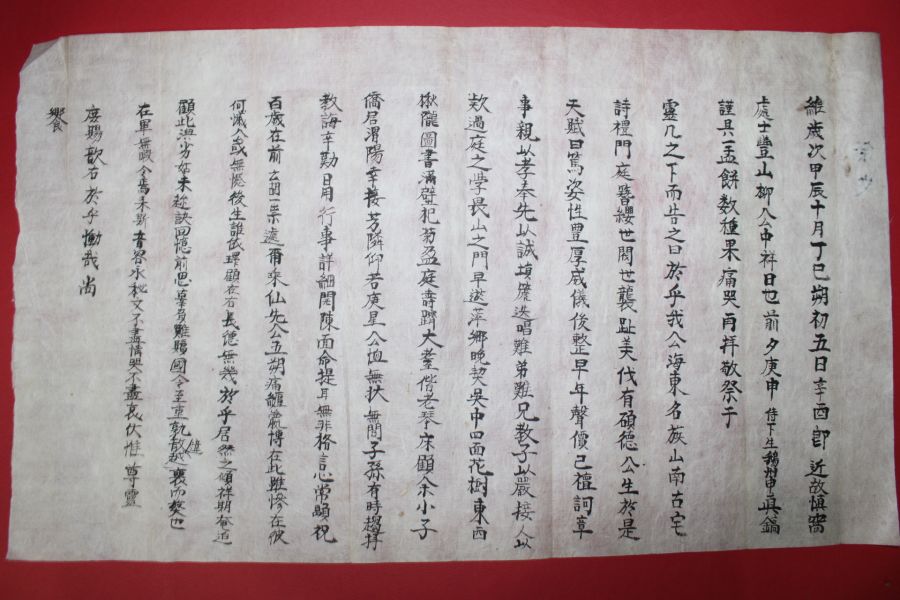 維歲次甲辰十月丁巳朔初五日辛酉卽 近故愼窩
處士豐山柳公中祥日也前夕庚申侍下生 眞鎬
謹具一盂餠数種果痛哭再拜敬祭于
靈几之下而告之曰於乎我公海東名族山南古宅
詩禮門庭簪纓世閥世襲趾美代有碩德公生於是
天賦曰篤姿性豊厚威儀後整早年聲價已檀詞草
事親以孝奉先以誠塤篪迭唱難弟難兄教子以嚴接人以
欵過庭之學長山之門早遊萍鄉晩契吳中四面花樹東西
楸隴圖書滿壁杞菊盈庭壽躋大耋偕老琴床顧余小子
僑居渭陽幸接芳隣仰若庚星公恤無扶無間子孫有時趨拜
教誨辛勤日用行事詳細開陳面命提耳無非格言常頤祝
百歲在前 一 遽爾乘仙先公五朔痛纏 在此雖慘在彼
何憾公或無憾後生誰依環顧左右長德無幾於乎居然之頃祥期奄迫
顧此 劣姑未趍訣回憶前恩 難贖國令至重執散 襄而 也
在單無 今焉來斯音容永 又 盡情哭不盡哀伏惟 尊靈
庶賜歆右於乎慟哉尚
饗